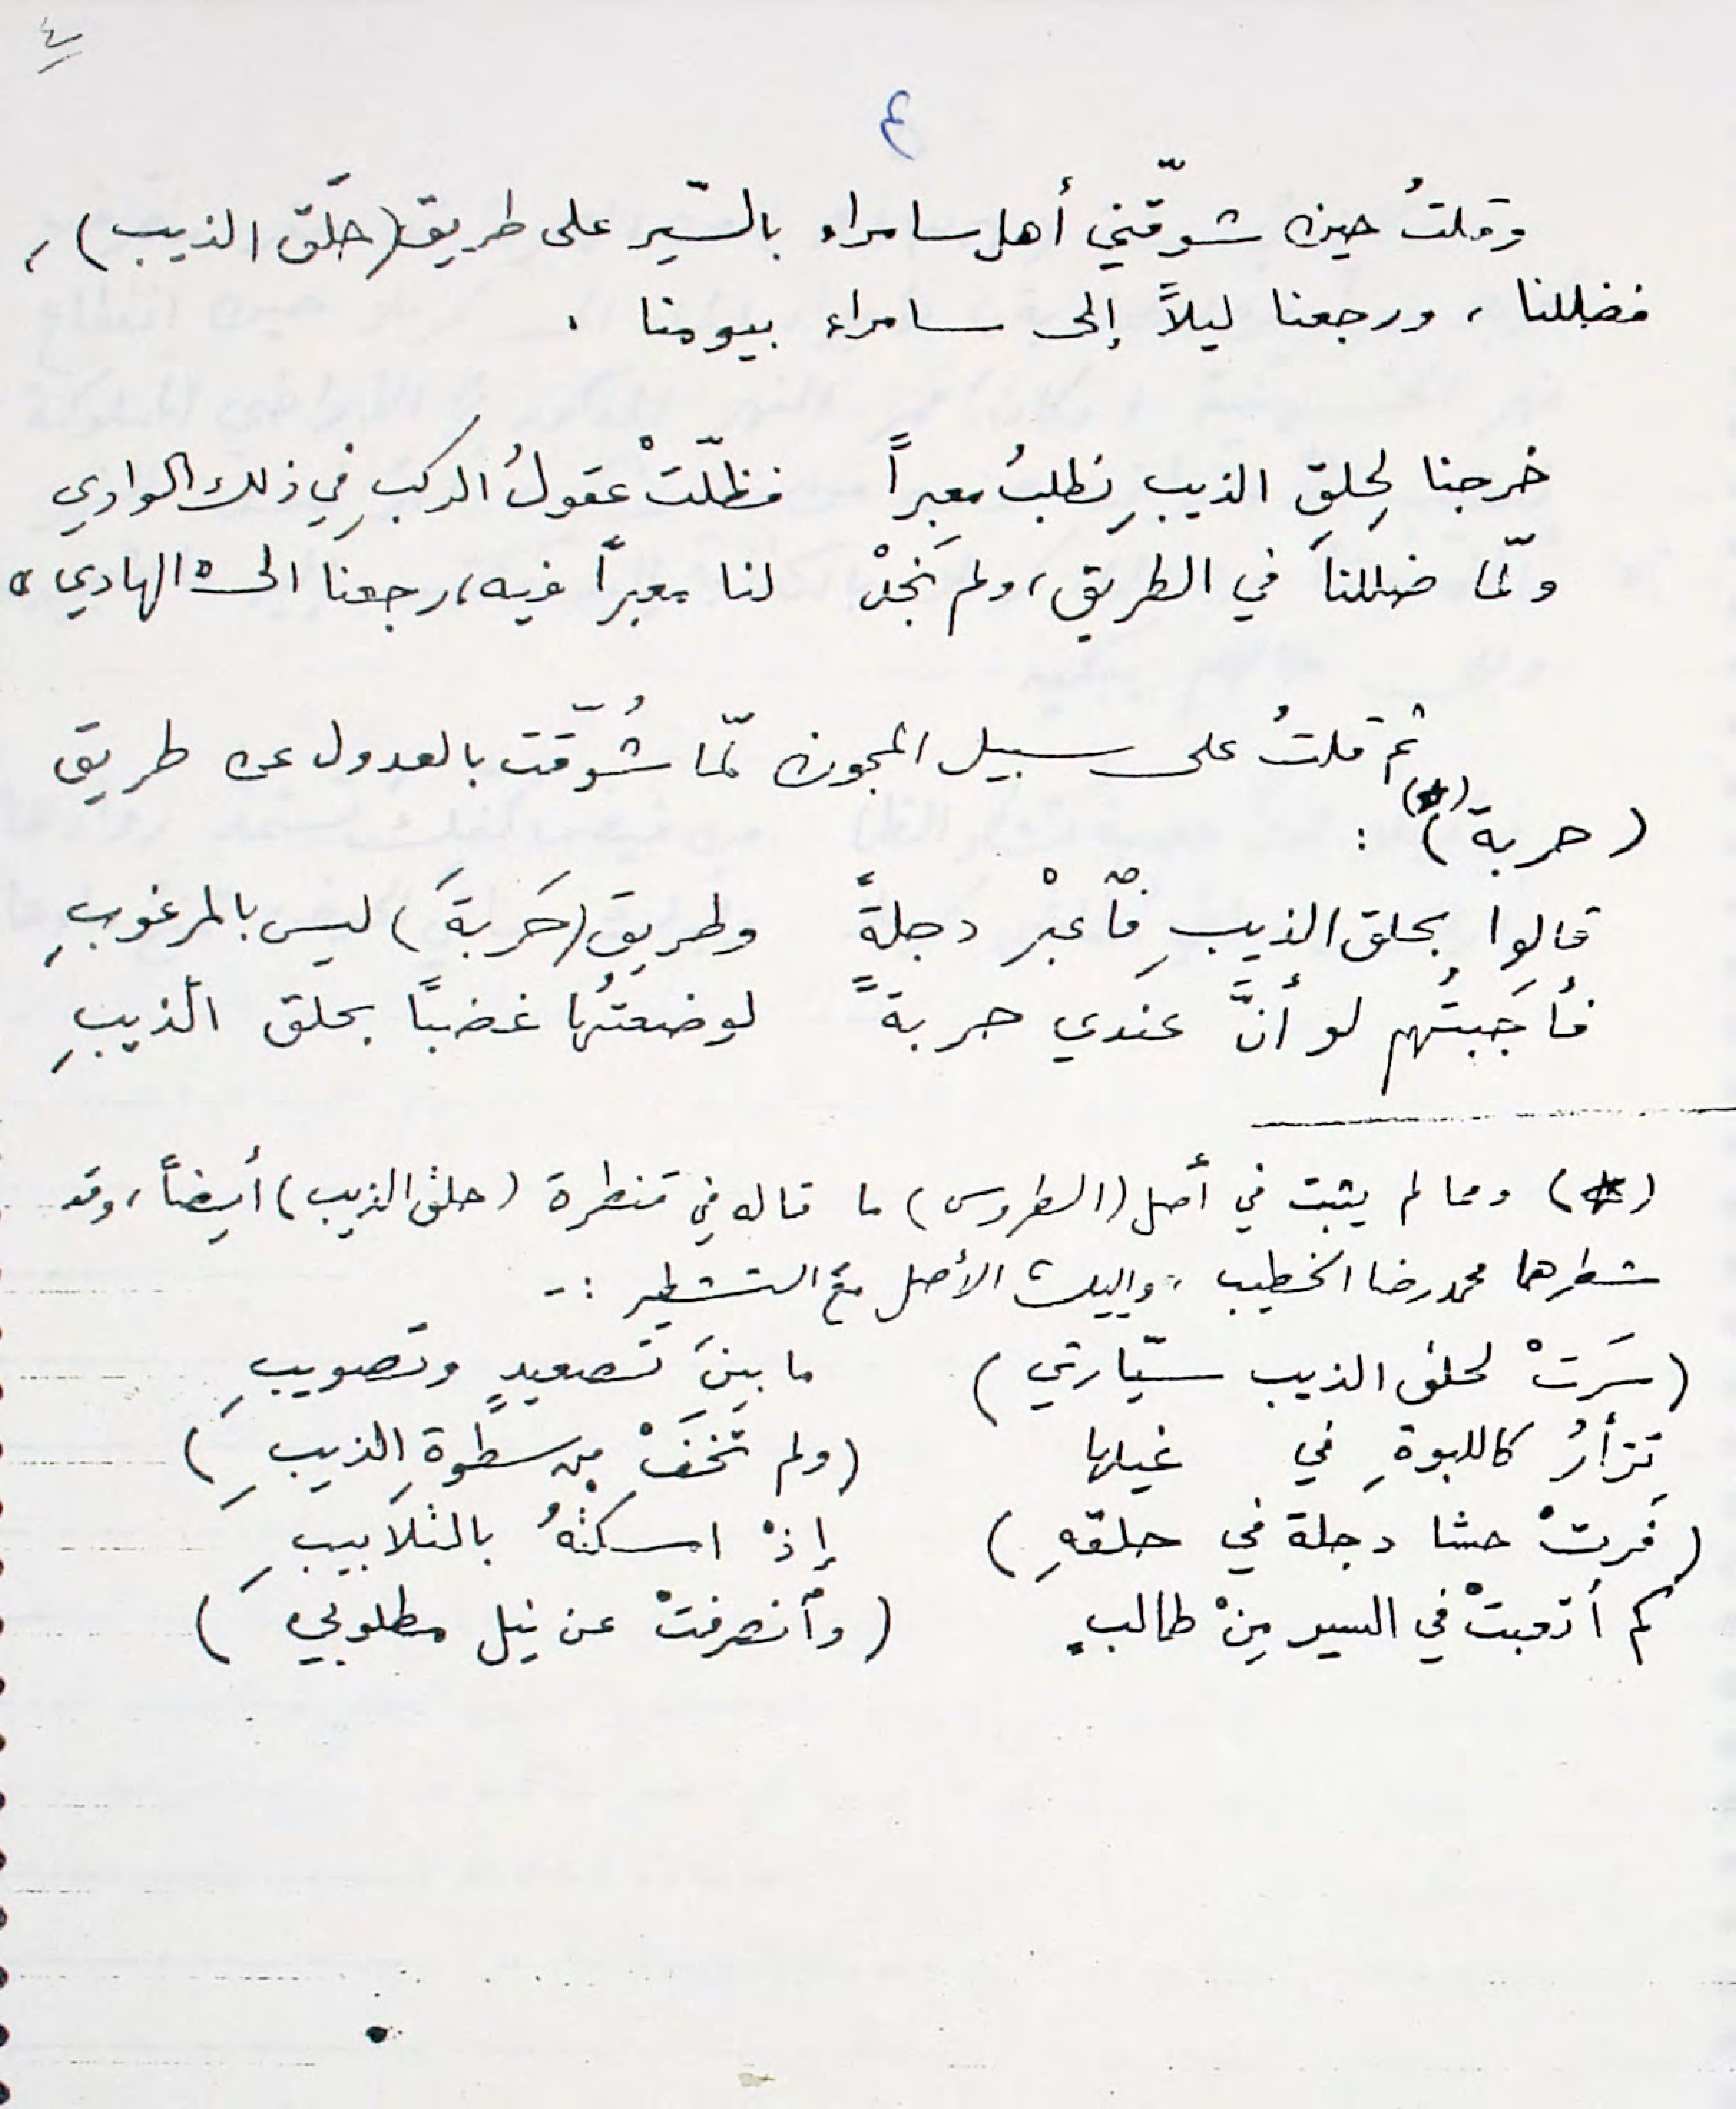 ٤
٤
وقلتُ حين شوّقني أهل سامراء بالسّير على طريق (حلَق الذيب)،
فضللنا، ورجعنا ليلاً إلى سامراء بيومنا .
خرجنا لِحلقِ الذيبِ نطلبُ معبراً فظلّتْ عقولُ الركبِ في ذلك الوادي
ولمّا ضللنا في الطريق، ولم نَجدْ لنا معبراً فيه، رجعنا الى الهادي
ثم قلتُ على سبيل المجون لمّا شُوّقت بالعدول عن طريق
(حربة)(*) :
قالوا بحلق الذيبِ فأعبْر دجلةً وطريق (حَربةَ) ليس بالمرغوبِ
فأجَبتُهم لو أنَّ عندي حربةً لوضعتُها غضباً بحلق الذيبِ
(*) ومما لم يثبت في أصل (الطروس) ما قاله في قنطرة (حلق الذيب) أيضاً، وقد
شطرهما محمد رضا الخطيب، وإليك الأصل مع التشطير :-
(سَرَتْ لحلق الذيب سيّارتي) ما بينَ تصعيدٍ وتصويبِ
تزأرُ كاللبوةِ في غيلها (ولم تخَفْ من سطوةِ الذيبِ)
(فَرتْ حشا دجلة في حلقهِ) إذْ امسكتْهُ بالتلابيبِ
كم أتعبتْ في السير مِنْ طالبٍ (وأنصرفتْ عن نيل مطلوبي)